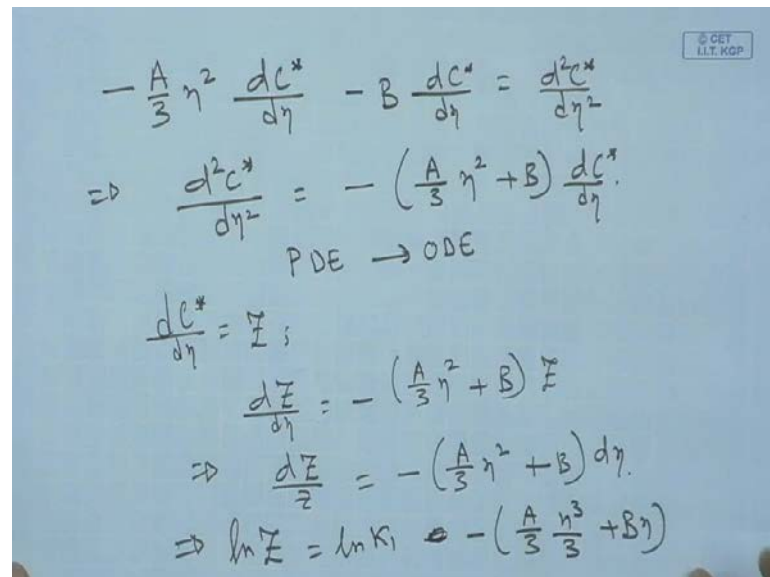 © CET
I.I.T. KGP
- A/3 η² dC*/dη - B dC*/dη = d²C*/dη²
⇒ d²C*/dη² = - (A/3 η² + B) dC*/dη.
PDE → ODE
dC*/dη = Z;
dZ/dη = - (A/3 η² + B) Z
⇒ dZ/Z = - (A/3 η² + B) dη.
⇒ ln Z = ln K₁ - (A/3 η³/3 + Bη)